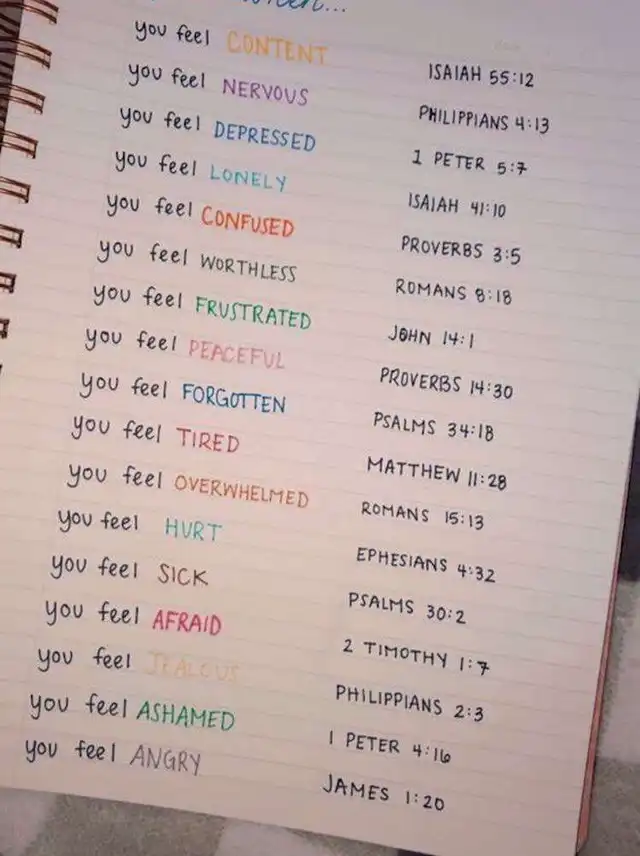 you feel CONTENT ISAIAH 55:12
you feel NERVOUS PHILIPPIANS 4:13
you feel DEPRESSED 1 PETER 5:7
you feel LONELY ISAIAH 41:10
you feel CONFUSED PROVERBS 3:5
you feel WORTHLESS ROMANS 8:18
you feel FRUSTRATED JOHN 14:1
you feel PEACEFUL PROVERBS 14:30
you feel FORGOTTEN PSALMS 34:18
you feel TIRED MATTHEW 11:28
you feel OVERWHELMED ROMANS 15:13
you feel HURT EPHESIANS 4:32
you feel SICK PSALMS 30:2
you feel AFRAID 2 TIMOTHY 1:7
you feel JEALOUS PHILIPPIANS 2:3
you feel ASHAMED 1 PETER 4:16
you feel ANGRY JAMES 1:20